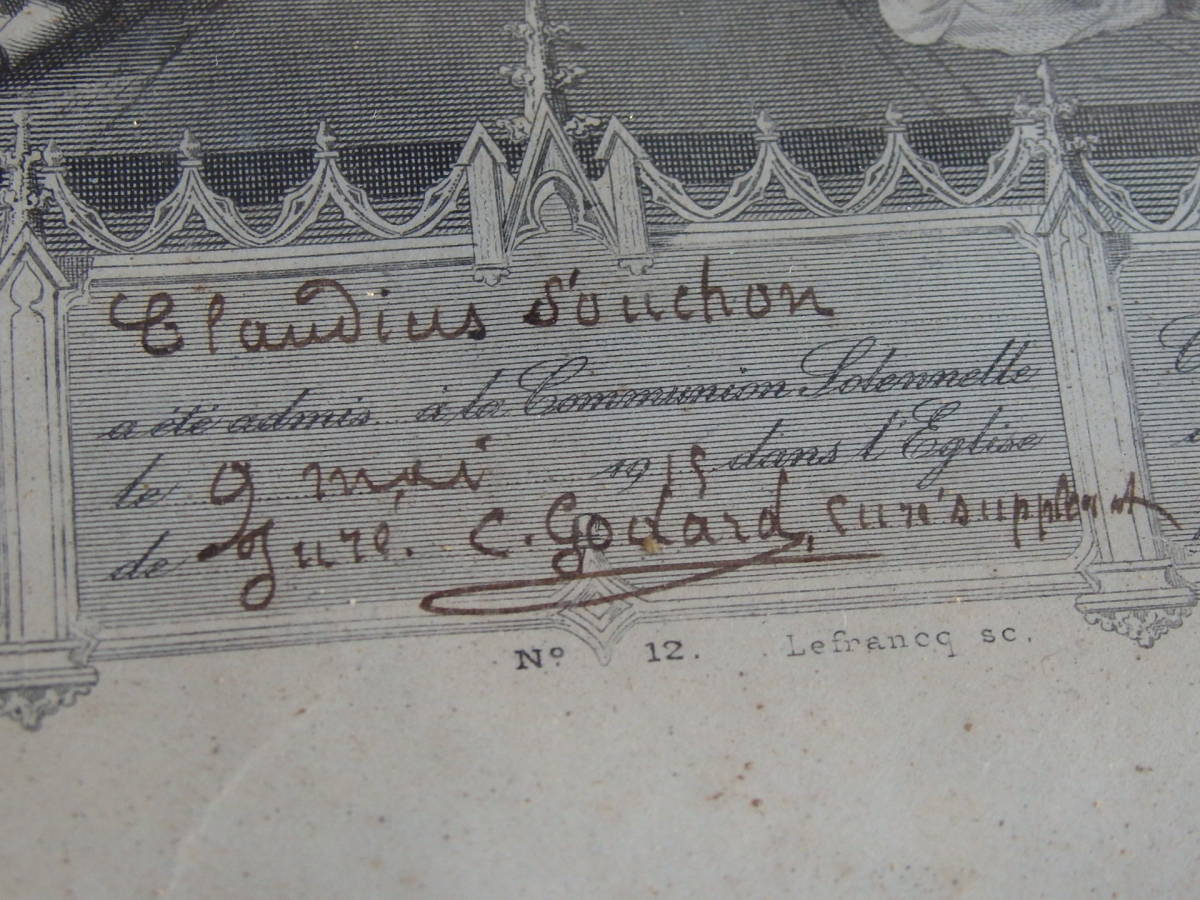 Claudius Souchon
a été admis à la Communion Solennelle
le 9 mai 1915 dans l'Eglise
de Juré. C. Godard, curé suppléant
Nº 12. Lefrancq sc.